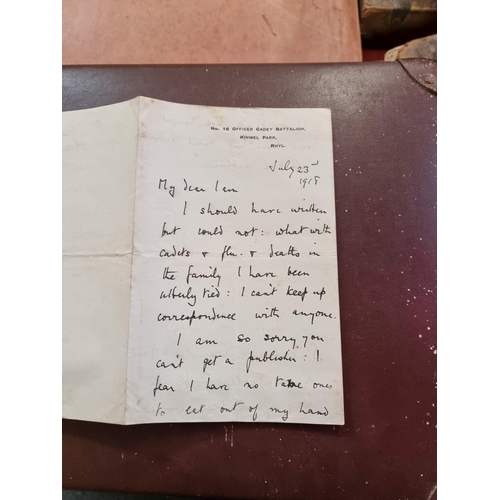 No. 16 OFFICER CADET BATTALION,
KINMEL PARK,
RHYL.
July 23rd
1918
My dear
I should have written
but could not: what with
cadets & flu. & deaths in
the family I have been
utterly tied: I can't keep up
correspondence with anyone.
I am so sorry you
can't get a publisher: I
fear I have no tame ones
to eat out of my hand